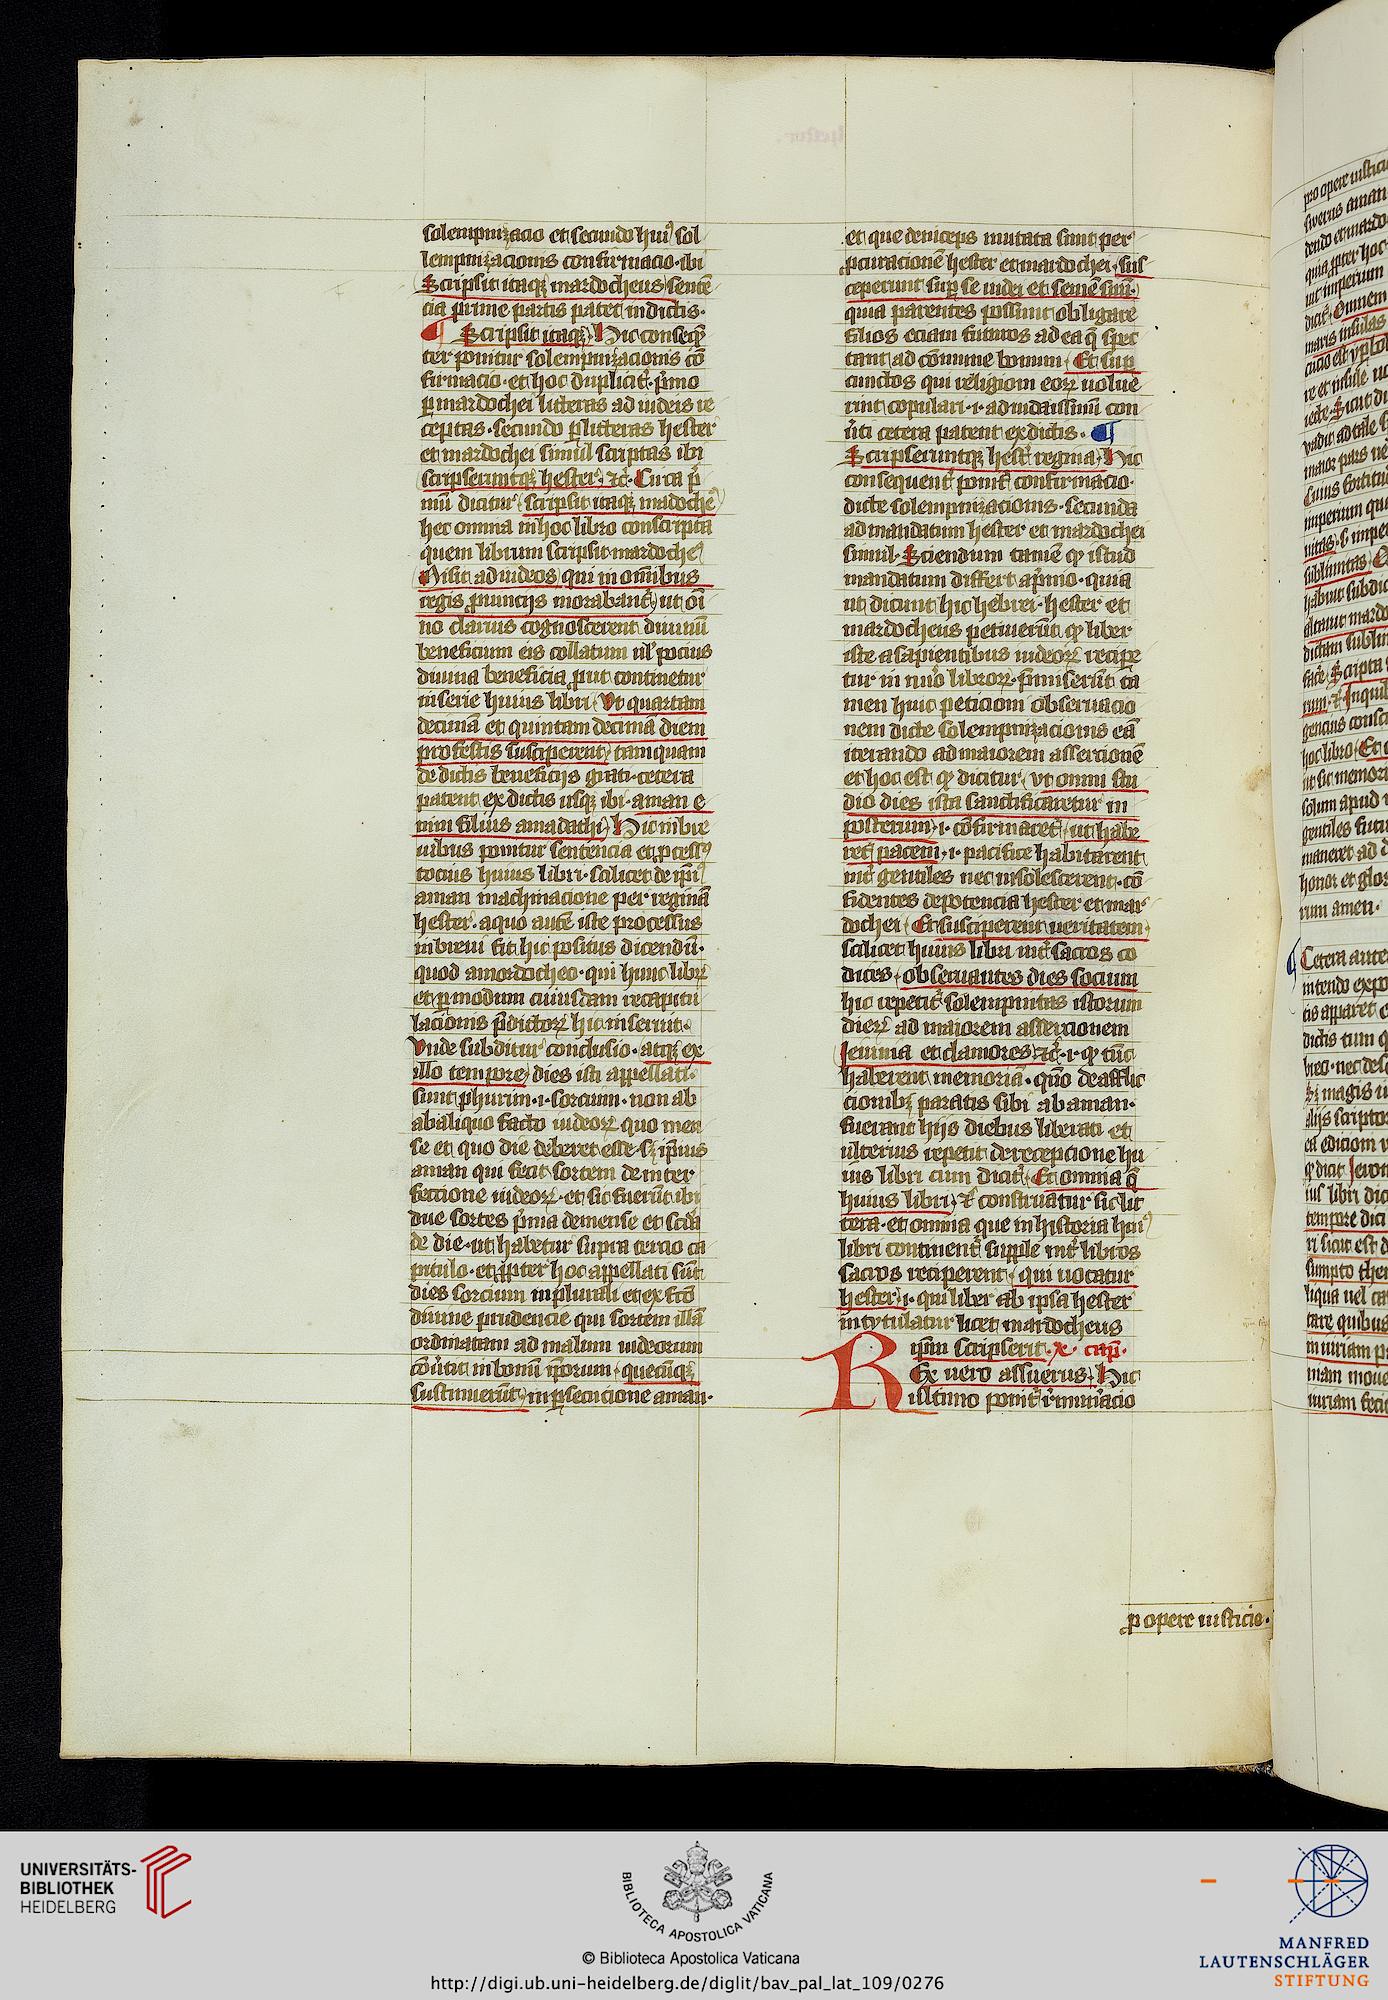 solempnizacio et secundo huiꝰ sol
lempnizacionis confirmacio · ibi
Scripsit itaqꝫ mardocheus senten̄
cia prime partis patet in dictis ·
¶ Scripsit itaqꝫ Hic conseq̄n
ter ponitur solempnizacionis cō
firmacio · et hoc duplicit̓ · p̓mo
ꝑ mardochei litteras ad iudeis re
ceptas · secundo ꝑ litteras hester
et mardochei simul scriptas ibi
scripseruntqꝫ hester · ⁊c̄ · Circa p̓
mū dicitur scripsit itaqꝫ madocheꝰ
hec omnia in hoc libro conscripta
quem librum scripsit mardocheꝰ
Misit ad iudeos qui in om̄ibus
regis ꝓuincijs morabant̓ ut oī
no clarius cognoscerent diuinū
beneficium eis collatum ul̓ pocius
diuina beneficia ꝓut continetur
in serie huius libri Vt quartam
decimā et quintam decimā diem
pro festis susciperent tamquam
de dictis beneficijs grati · cetera
patent ex dictis usqꝫ ibi · aman e
nim filius amadachi Hic in bre
uibus ponitur sentencia et ꝓcessꝰ
tocius huius libri · scilicet de ip̄iꝰ
aman machinacione per reginā
hester · a quo autē iste processus
in breui sit hic positus dicendū ·
quod a mordocheo · qui hunc librꝫ
et ꝑ modum cuiusdam recapitu
lacionis p̄dictorꝫ hic inseruit ·
Vnde subditur conclusio · atqꝫ ex
illo tempore dies isti appellati ·
sunt phurim · i · sorcium · non ab
ab aliquo facto iudeorꝫ quo men
se et quo die deberet esse · sꝫ ip̄ius
aman qui fecit sortem de inter
fectione iudeorꝫ · et sic fuerūt ibi
due sortes p̓ma de mense et scd̄a
de die · ut habetur supra tercio ca
pitulo · et ꝓpter hoc appellati sūt
dies sorcium in plurali et ex sc̄o
diuine prudencie qui sortem illā
ordinatam ad malum iudeorum
cōu̓tit in bonū ip̄orum · quecūqꝫ
sustinuerūt in ꝑsecucione aman ·
et que deniceps mutata sunt per
ꝓcuracionē hester et mardochei · sus
ceperunt suꝑ se iudei et semē suū ·
quia parentes possunt obligare
filios eciam futuros ad ea q̄ spec
tant ad cōmune bonum · Et suꝑ
cunctos qui religioni eorꝫ uolue
rint copulari · i · ad iudaissimū con
u̓ti cetera patent ex dictis · ¶
Scripseruntqꝫ hest̓ regina Hic
consequent̓ ponit̓ confirmacio ·
dicte solempnizacionis · secunda
ad mandatum hester et mardochei
simul · Sciendum tamē ꝙ istud
mandatum differt a p̓mo · quia
ut dicunt hic hebrei · hester et
mardocheus petiuerūt ꝙ liber
iste a sapientibus iudeorꝫ recipe
tur in nūo librorꝫ ·
men huic peticioni obseruacio
nem dicte solempnizacionis eā
iterando ad maiorem assercionē
et hoc est ꝙ dicitur vt omni stu
dio dies ista sanctificaretur in
posterum · i · cōfirmaret̓ ut habe
ret̓ pacem · i · pacifice habitarent
int̓ gentiles nec insolescerent · cō
fidentes de potencia hester et mar
dochei · Et susciperent ueritatem ·
scilicet huius libri int̓ sacros co
dices · obseruantes dies socium
hic repetit̓ solempnitas istorum
dierꝫ ad maiorem assercionem
Jeiunia et clamores ⁊c̄ · i · ꝙ tūc
haberent memoriā · quō de afflic
cionibꝫ paratis sibi ab aman ·
fuerant hijs diebus liberati et
ulterius repetit de recepcione hu
ius libri cum dicit̓ Et omnia q̄
huius libri ⁊c̄ construatur sic lit
tera · et omnia que in historia huiꝰ
libri continent̓ supple int̓ libros
sacros reciperent qui uocatur
hester · i · qui liber ab ipsa hester
intytulatur licet mardocheus
ip̄m scripserit · x · cap̄ ·
Rex uero assuerus · Hic
ultimo ponit̓ r̓mun̓acio
ꝓ opere iusticie ·
UNIVERSITÄTS-
BIBLIOTHEK
HEIDELBERG
BIBLIOTECA APOSTOLICA VATICANA
© Biblioteca Apostolica Vaticana
http://digi.ub.uni-heidelberg.de/diglit/bav_pal_lat_109/0276
MANFRED
LAUTENSCHLÄGER
STIFTUNG